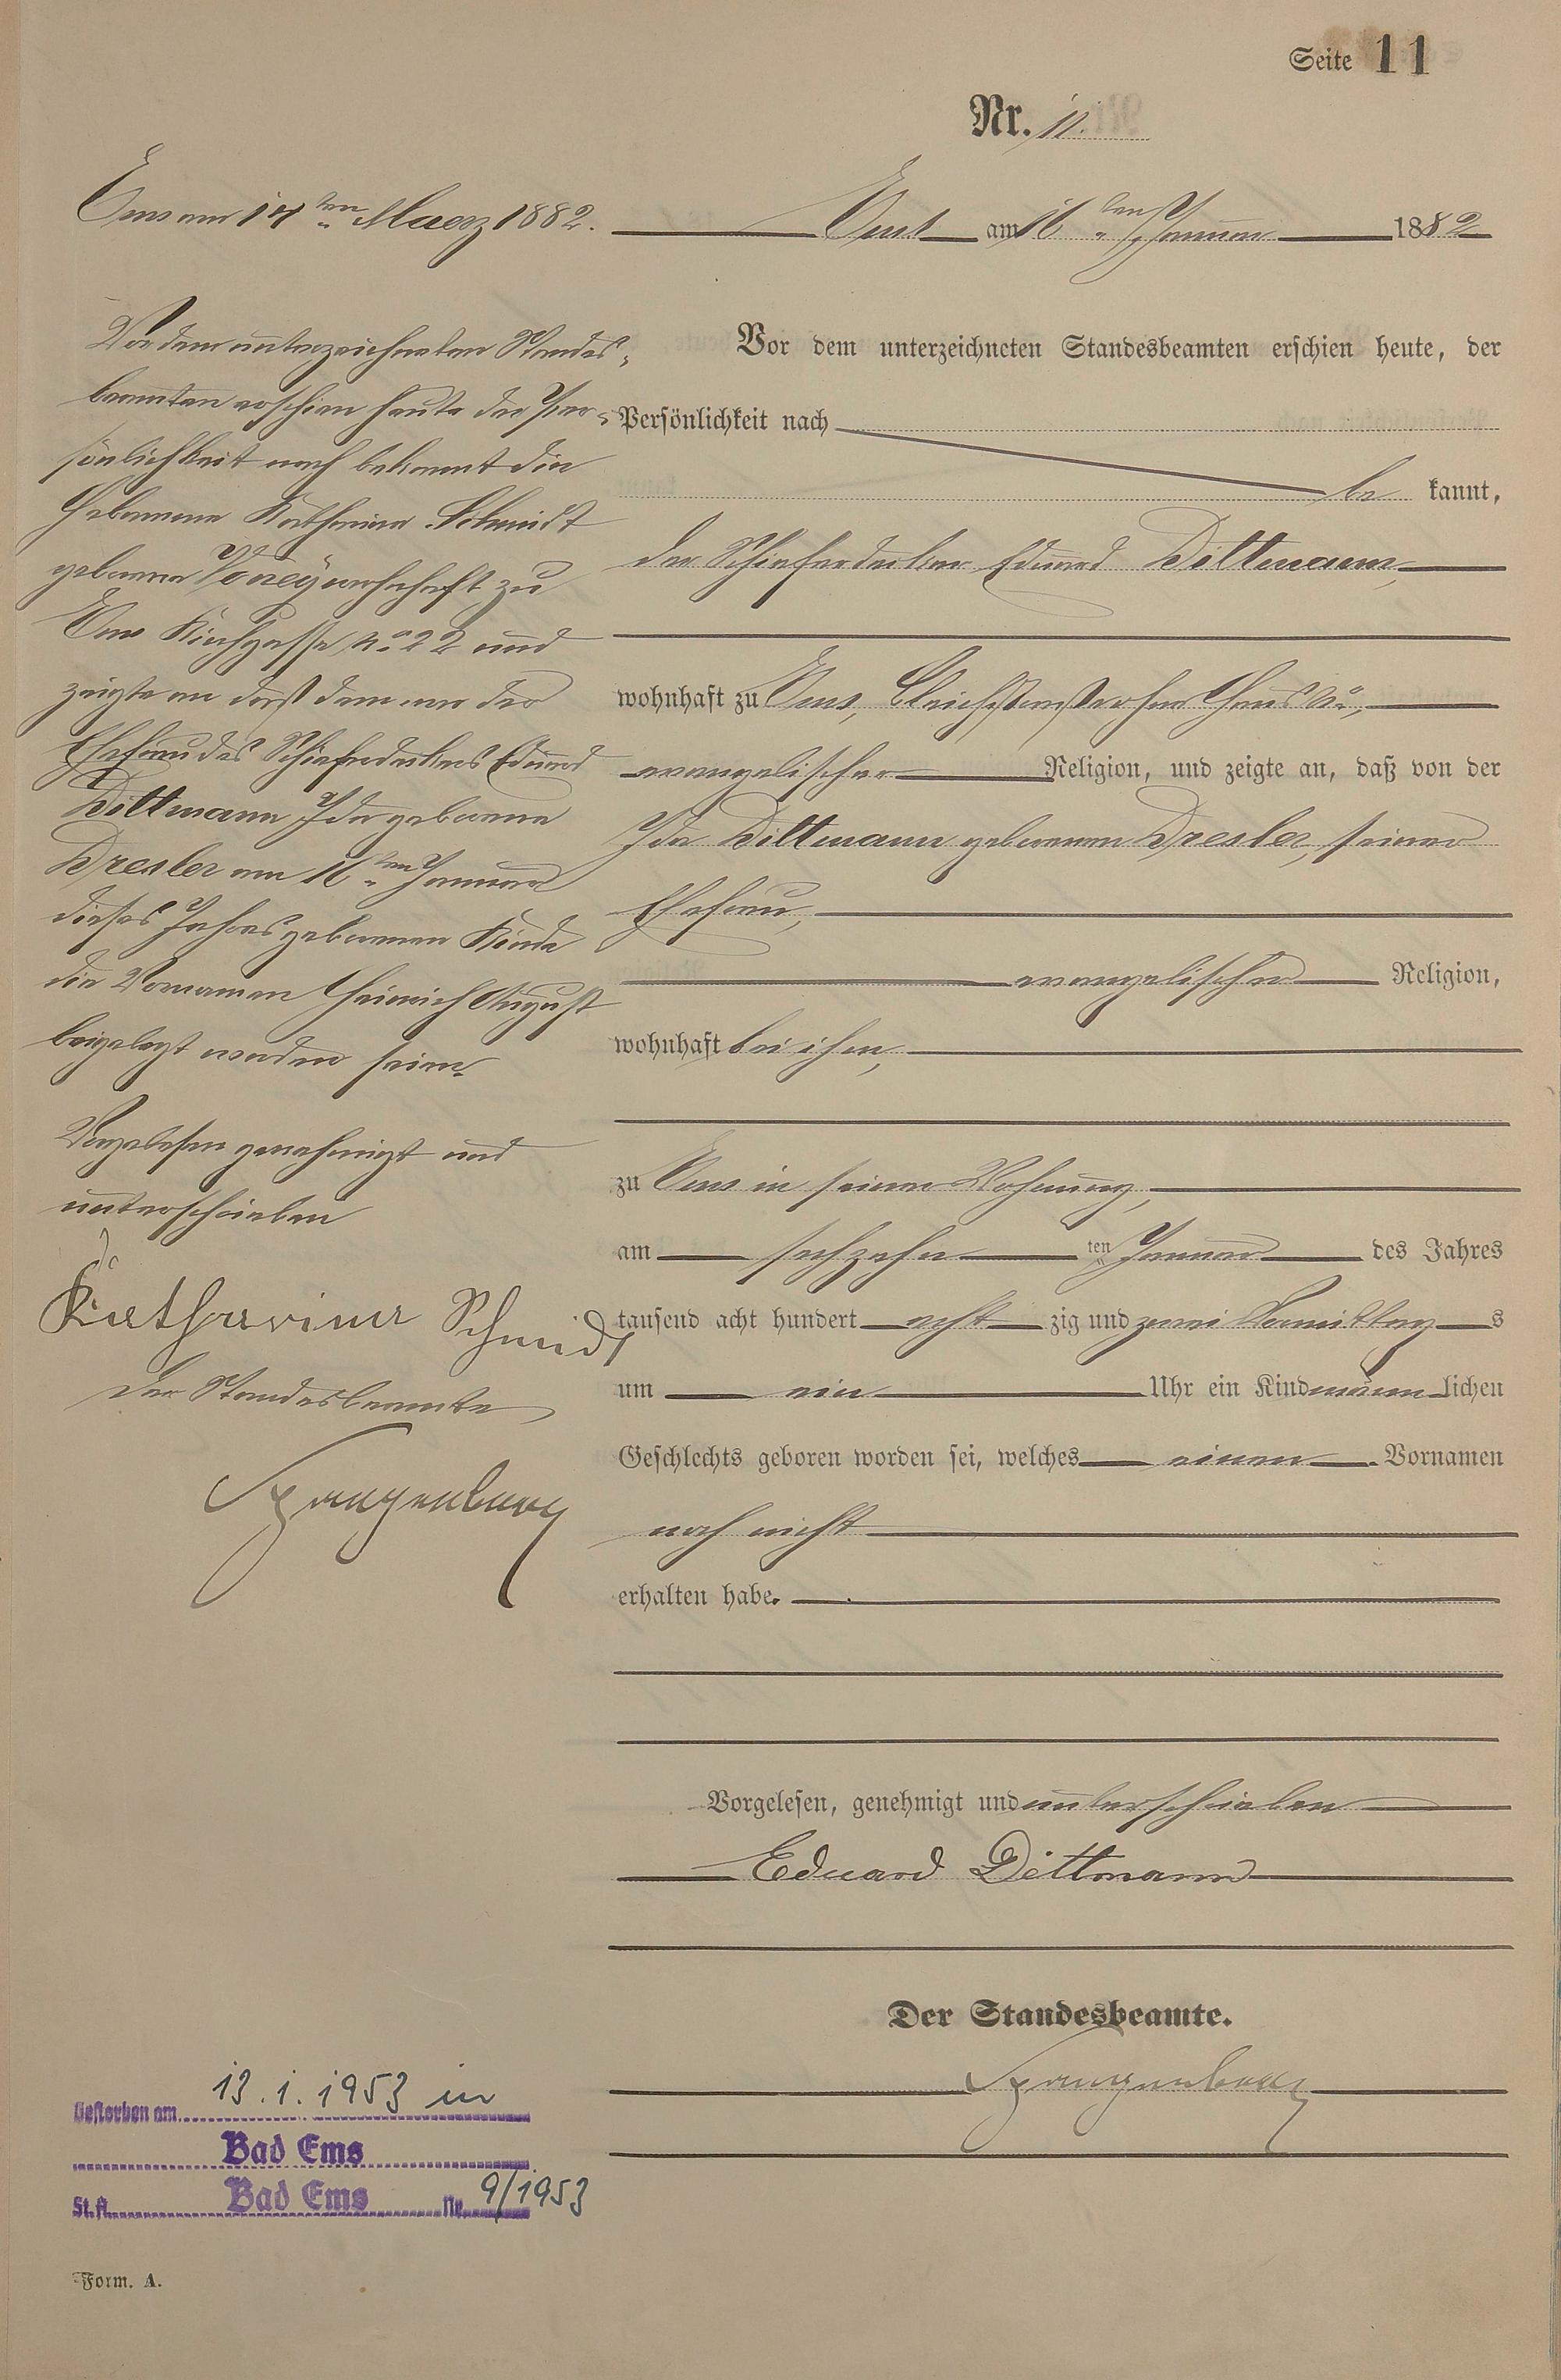 Seite 11
Nr. 11.
Ems am 14ten Maerz 1882.
Vor dem unterzeichneten Standes-
beamten erschien heute der Per-
sönlichkeit nach bekannt die
Hebamme Katharina Schmidt
geborene wohnhaft zu
Ems Kirchgasse No 22 und
zeigte an daß dem von der
Ehefrau des Schieferdeckers Eduard
Dittmann Ida geborene
Dresler am 16ten Januar
dieses Jahres geborenen Kinde
die Vornamen Heinrich August
beigelegt worden seien.
Vorgelesen genehmigt und
unterschrieben
Katharina Schmidt
Der Standesbeamte
Spangenberg
Ems am 16ten Januar 1882
Vor dem unterzeichneten Standesbeamten erschien heute, der
Persönlichkeit nach
be kannt,
der Schieferdecker Eduard Dittmann,
wohnhaft zu Ems, Haus
evangelischer Religion, und zeigte an, daß von der
Ida Dittmann geborenen Dresler, seiner
Ehefrau,
evangelischer Religion,
wohnhaft bei ihm,
zu Ems in seiner Wohnung,
am sechzehn ten Januar des Jahres
tausend acht hundert acht zig und zwei Vormittag s
um ein Uhr ein Kind männ lichen
Geschlechts geboren worden sei, welches einen Vornamen
noch nicht
erhalten habe.
Vorgelesen, genehmigt und unterschrieben
Eduard Dittmann
Der Standesbeamte.
Spangenberg
Gestorben am 13.1.1953 in
Bad Ems
St.A. Bad Ems Nr. 9/1953
Form. A.